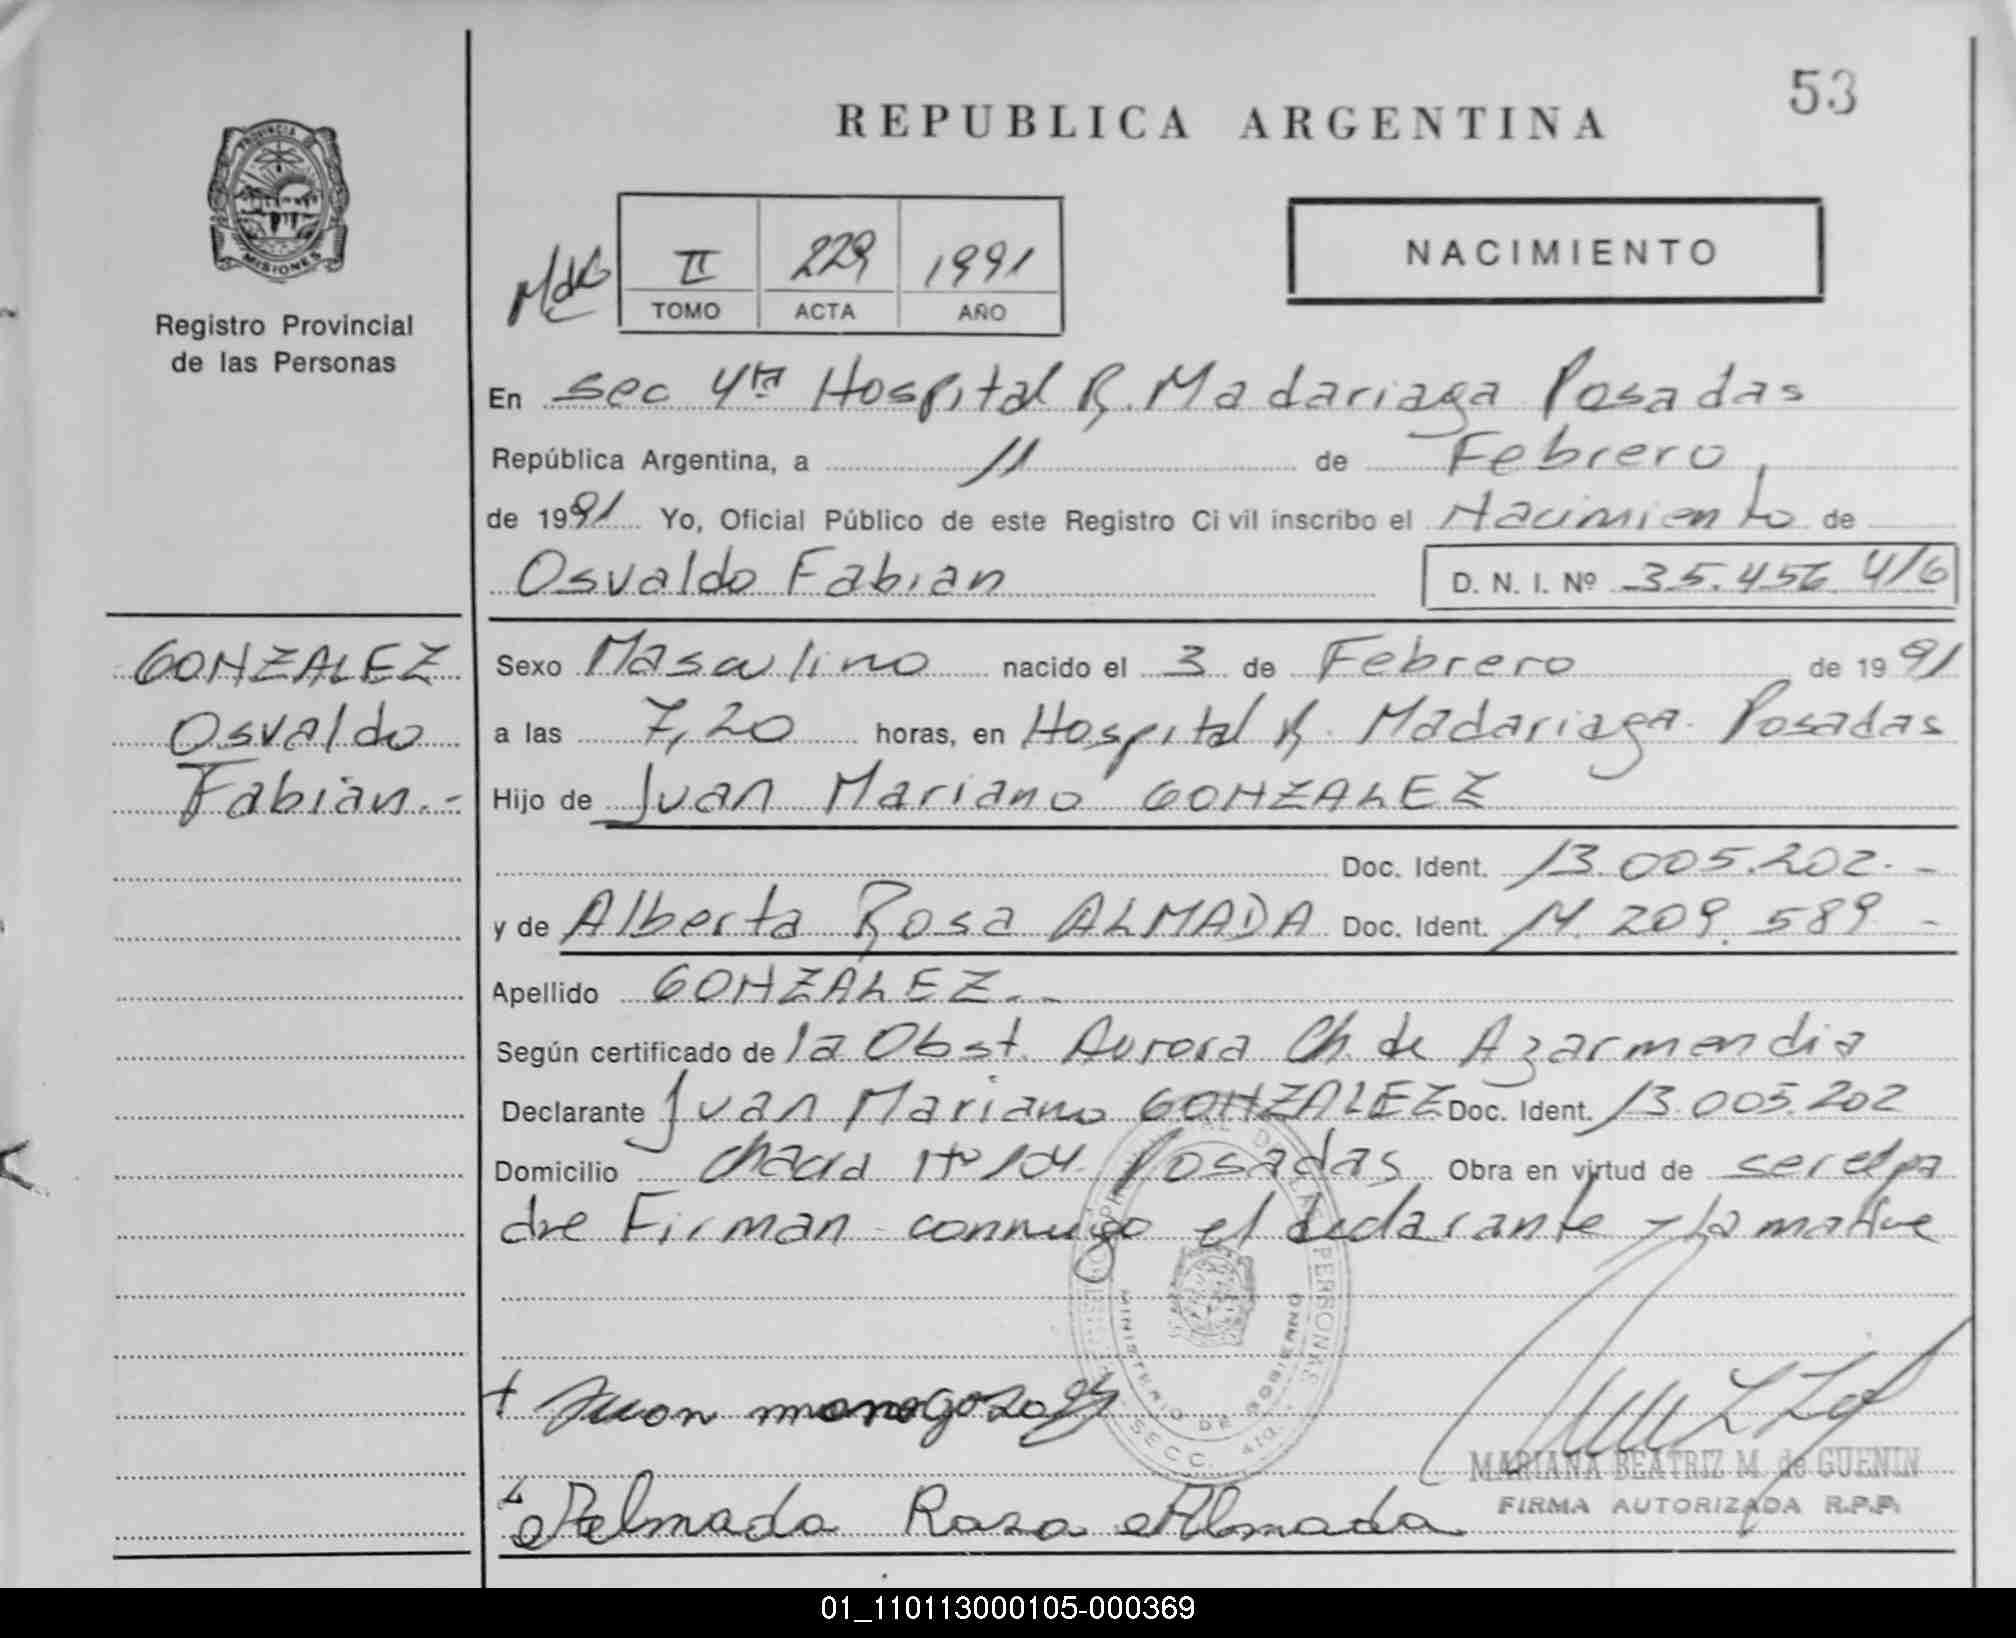 53
REPUBLICA ARGENTINA
PROVINCIA DE
MISIONES
Registro Provincial
de las Personas
II 229 1991
TOMO ACTA AÑO
NACIMIENTO
En sec 4ta Hospital R. Madariaga Posadas
República Argentina, a 11 de Febrero
de 1991 Yo, Oficial Público de este Registro Civil inscribo el Nacimiento de
Osvaldo Fabian D. N. I. Nº 35.456.416
GONZALEZ
Osvaldo
Fabian.-
Sexo Masculino nacido el 3 de Febrero de 1991
a las 7,20 horas, en Hospital R. Madariaga Posadas
Hijo de Juan Mariano GONZALEZ
Doc. Ident. 13.005.202.-
y de Alberta Rosa ALMADA Doc. Ident. 14.209.589-
Apellido GONZALEZ.-
Según certificado de la Obst. Aurora Ch. de Azarmendia
Declarante Juan Mariano GONZALEZ Doc. Ident. 13.005.202
Domicilio chacra Nº 104. Posadas Obra en virtud de ser el pa
dre Firman conmigo el declarante y la madre
MINISTERIO DE GOBIERNO
SECC. 4ta.
Juan
Almada Rosa Almada
MARIANA BEATRIZ M. de GUENIN
FIRMA AUTORIZADA R.P.P.
01_110113000105-000369